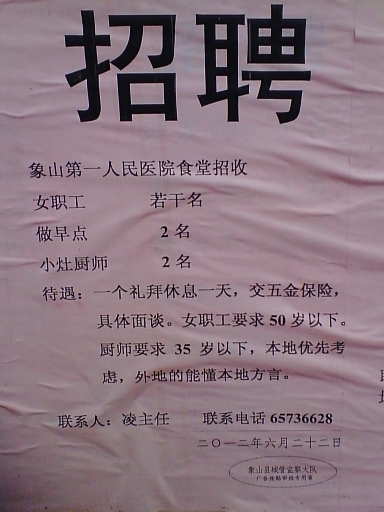 招聘
象山第一人民医院食堂招收
女职工 若干名
做早点 2 名
小灶厨师 2 名
待遇：一个礼拜休息一天，交五金保险，
具体面谈。女职工要求 50 岁以下。
厨师要求 35 岁以下，本地优先考
虑，外地的能懂本地方言。
联系人：凌主任 联系电话 65736628
二〇一二年六月二十二日
象山县城管监察大队
广告张贴审批专用章